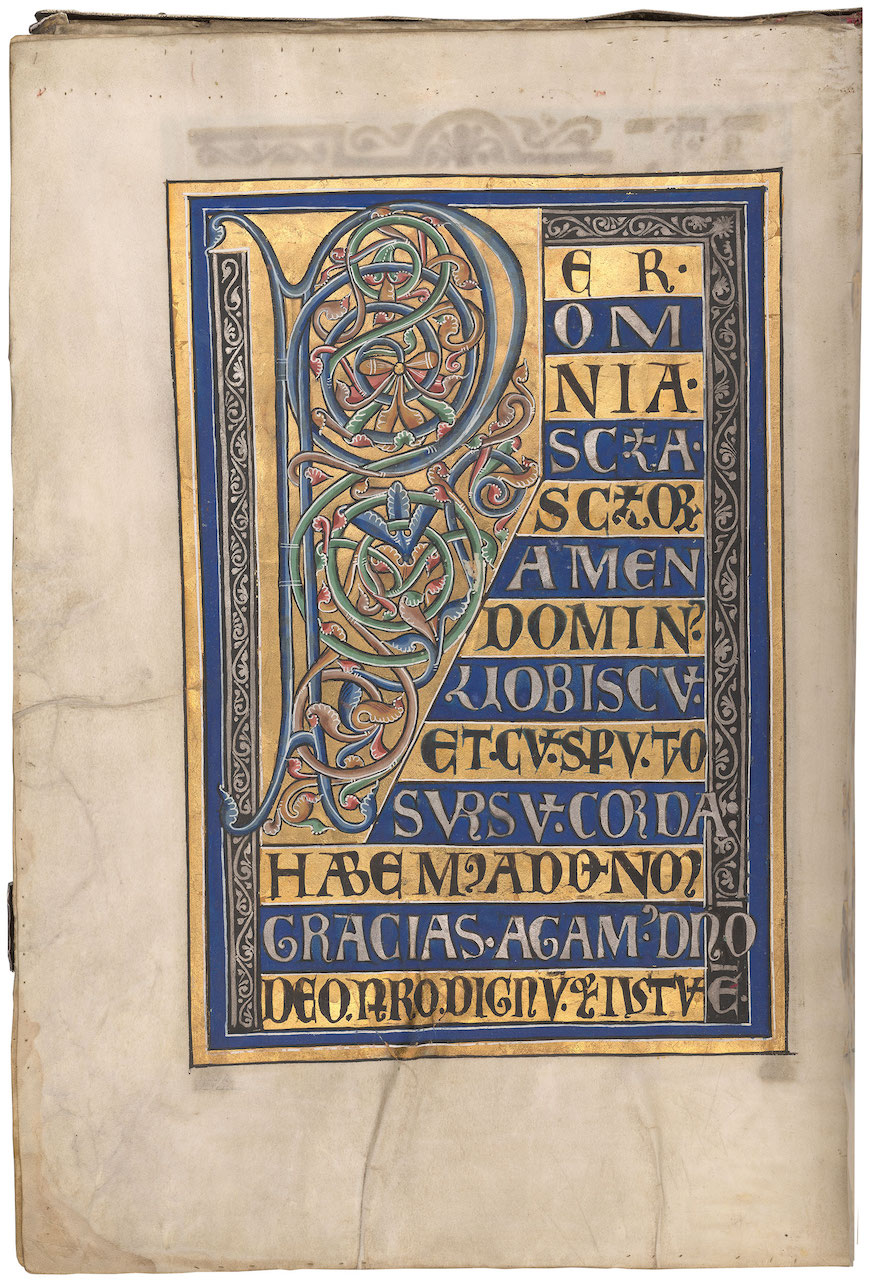 PER·
OM
NIA·
SCŁA·
SCŁOꝜ
AMEN
DOMINꝰ
UOBISCV̄·
ET·CV̄·SPV·TO
SVRSV̄·CORDA
HABEMꝰ AD D·NOꝫ
GRACIAS·AGAMꝰ DNO
DEO·NRO·DIGNV·& IVSTV Ē·